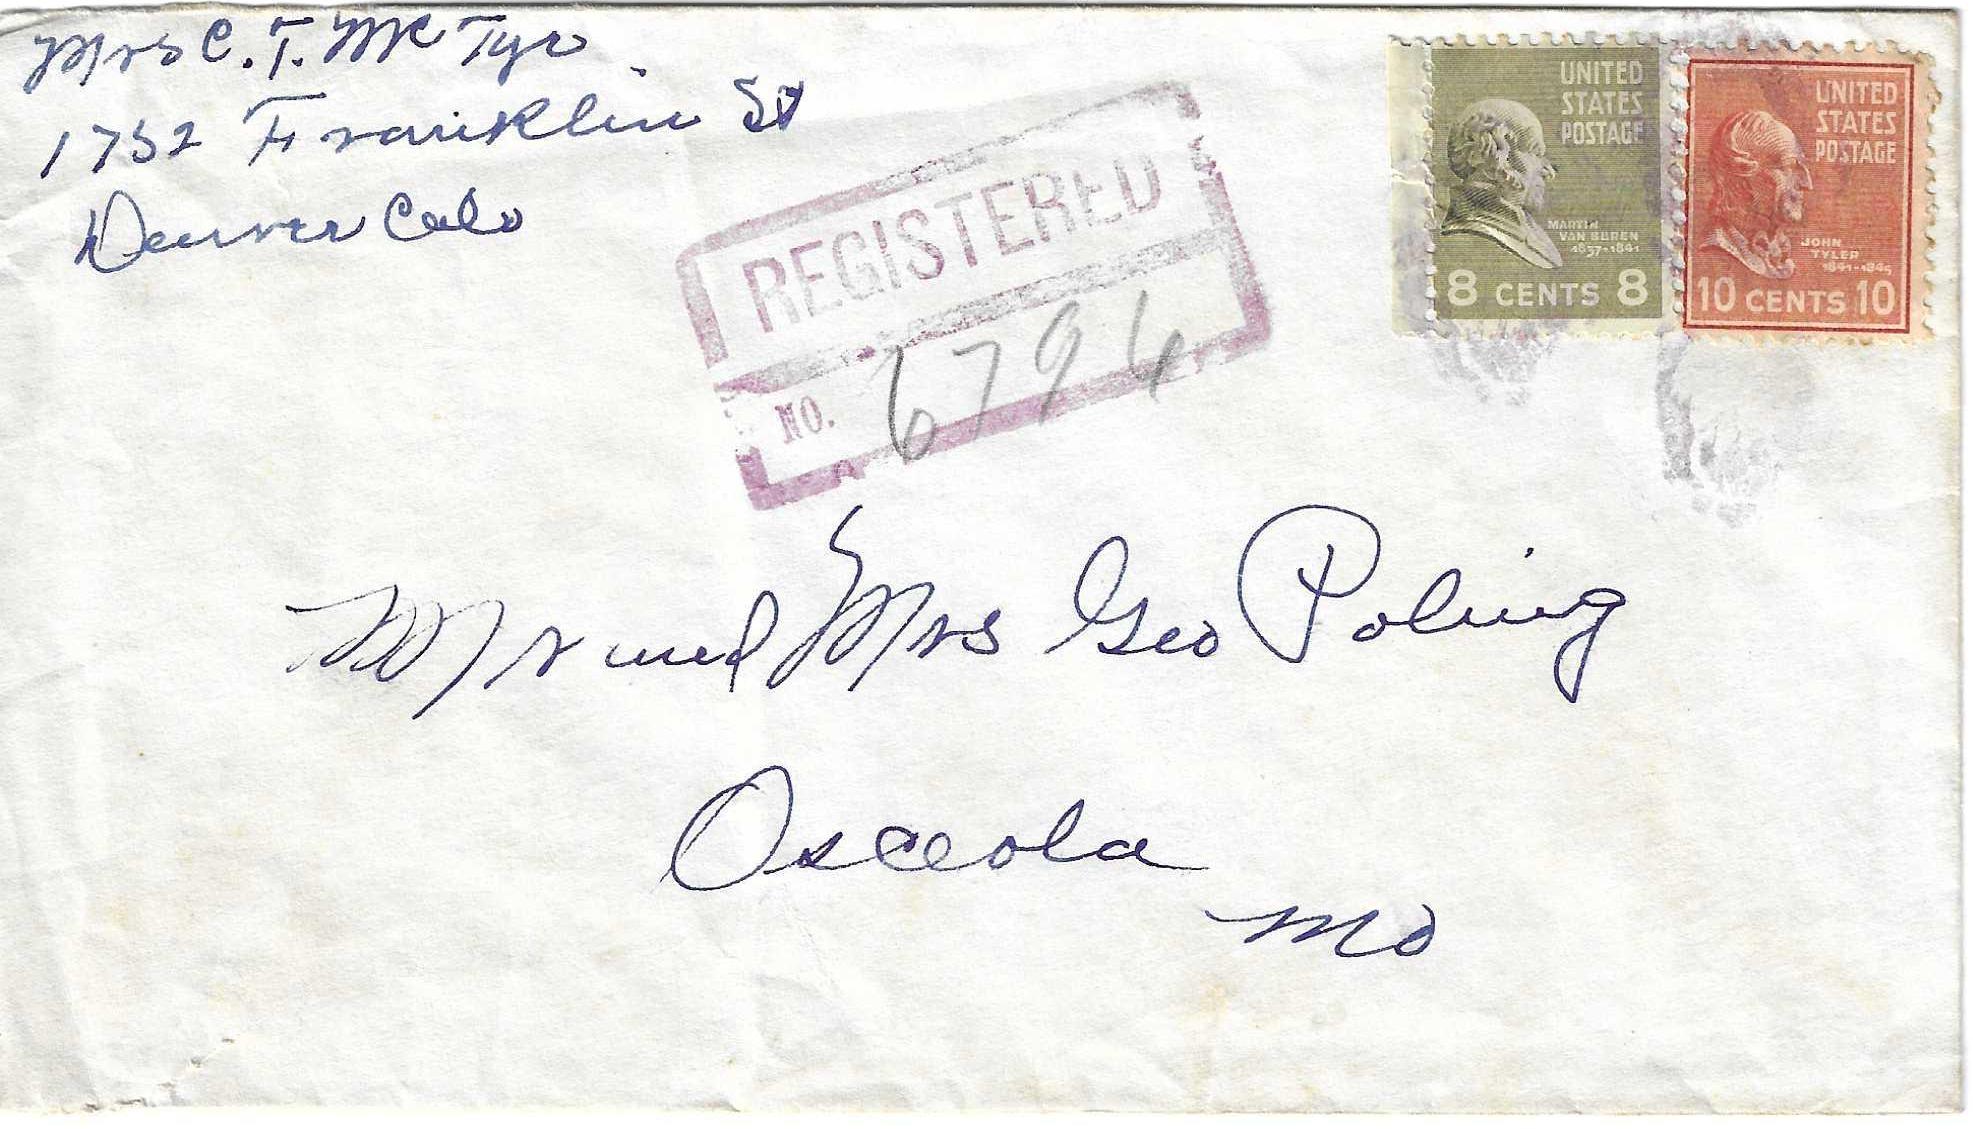 Mrs C. T. McTyr
1752 Franklin St
Denver Colo
REGISTERED
NO. 6794
UNITED
STATES
POSTAGE
MARTIN
VAN BUREN
1837-1841
8 CENTS 8
UNITED
STATES
POSTAGE
JOHN
TYLER
1841-1845
10 CENTS 10
Mr and Mrs Geo Poling
Osceola
Mo